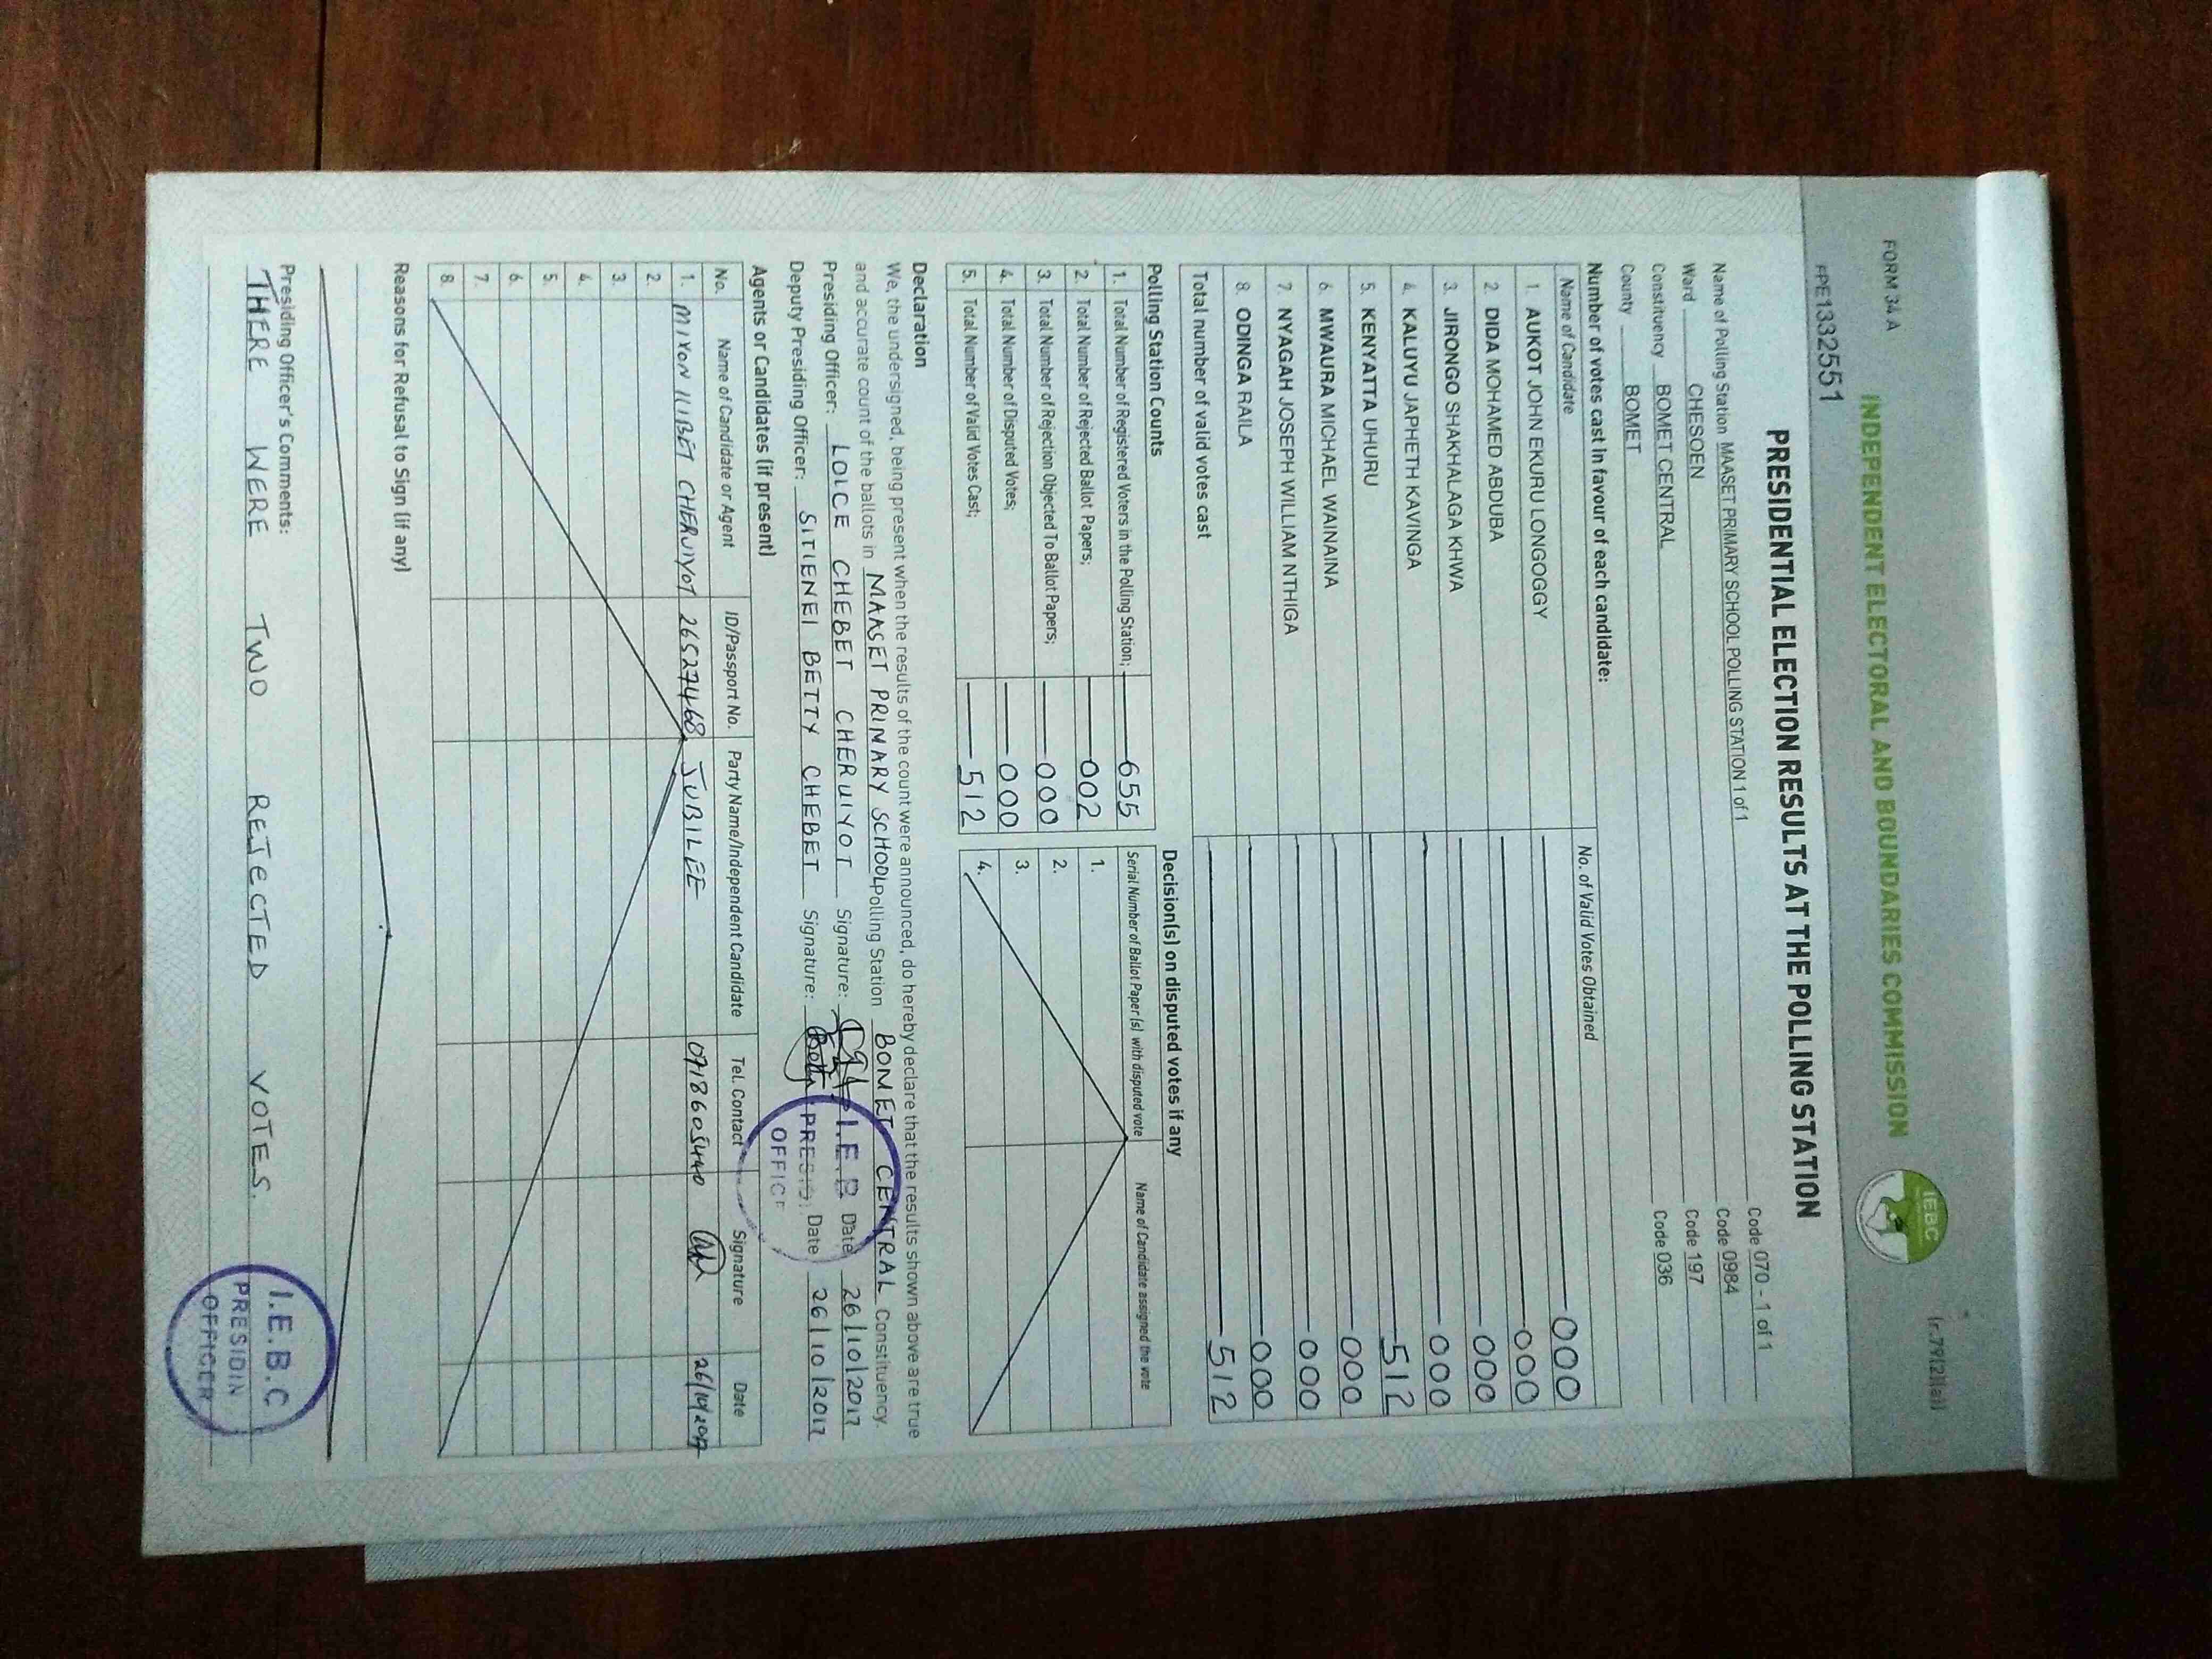 FORM 34 A
(r.79(2)(a))
INDEPENDENT ELECTORAL AND BOUNDARIES COMMISSION
IEBC
PPE1332551
PRESIDENTIAL ELECTION RESULTS AT THE POLLING STATION
Name of Polling Station MAASET PRIMARY SCHOOL POLLING STATION 1 of 1 Code 070 - 1 of 1
Ward CHESOEN Code 0984
Constituency BOMET CENTRAL Code 197
County BOMET Code 036
Number of votes cast in favour of each candidate:
Name of Candidate No. of Valid Votes Obtained
1. AUKOT JOHN EKURU LONGOGGY 000
2 DIDA MOHAMED ABDUBA 000
3. JIRONGO SHAKHALAGA KHWA 000
4. KALUYU JAPHETH KAVINGA 000
5. KENYATTA UHURU 512
6. MWAURA MICHAEL WAINAINA 000
7. NYAGAH JOSEPH WILLIAM NTHIGA 000
8. ODINGA RAILA 000
Total number of valid votes cast 512
Polling Station Counts
1. Total Number of Registered Voters in the Polling Station; 655
2. Total Number of Rejected Ballot Papers; 002
3. Total Number of Rejection Objected To Ballot Papers; 000
4. Total Number of Disputed Votes; 000
5. Total Number of Valid Votes Cast; 512
Decision(s) on disputed votes if any
Serial Number of Ballot Paper(s) with disputed vote Name of Candidate assigned the vote
1.
2.
3.
4.
Declaration
We, the undersigned, being present when the results of the count were announced, do hereby declare that the results shown above are true
and accurate count of the ballots in MAASET PRIMARY SCHOOL Polling Station BOMET CENTRAL Constituency.
Presiding Officer: LOICE CHEBET CHERUIYOT Signature: Date 26/10/2017
Deputy Presiding Officer: SITIENEI BETTY CHEBET Signature: Betty Date 26/10/2017
I.E.B
PRESIDI
OFFICE
Agents or Candidates (if present)
No. Name of Candidate or Agent ID/Passport No. Party Name/Independent Candidate Tel. Contact Signature Date
1. KIBET CHERUIYOT 26527468 JUBILEE 0718605440 26/10/2017
2.
3.
4.
5.
6.
7.
8.
Reasons for Refusal to Sign (if any)
Presiding Officer's Comments:
THERE WERE TWO REJECTED VOTES.
I.E.B.C
PRESIDIN
OFFICER